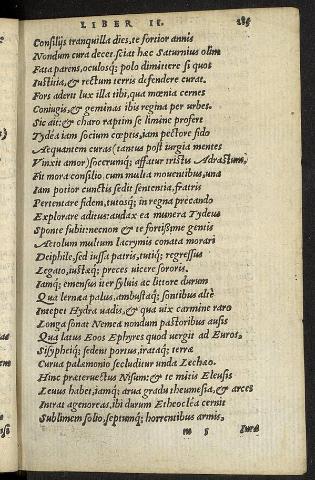 LIBER II. 185
Consilijs tranquilla dies, te fortior annis
Nondum cura decet. sciat hæc Saturnius olim
Fata parens, oculosq; polo dimittere si quot
Iustitia, & rectum terris defendere curat.
Fors aderit lux illa tibi, qua mœnia cernes
Coniugis, & geminas ibis regina per urbes.
Sic ait: & charo raptim se limine profert
Tydea iam socium cœptis, iam pectore fido
Aequantem curas (tantus post iurgia mentes
Vinxit amor) socerumq; affatur tristis Adrastum,
Fit mora consilio, cum multa mouentibus, una
Iam potior cunctis sedit sententia, fratris
Pertentare fidem, tutosq; in regna precando
Explorare aditus: audax ea munera Tydeus
Sponte subit: necnon & te fortissime gentis
Aetolum multum lacrymis conata morari
Deiphile, sed iussa patris, tutiq; regressus
Legato, iustæq; preces uicere sororis.
Iamq; emensus iter syluis ac littore durum
Qua lernæa palus, ambustaq; fontibus altè
Intepet Hydra uadis, & qua uix carmine raro
Longa sonat Nemea nondum pastoribus ausis
Qua latus Eoos Ephyres quod uergit ad Euros,
Sisypheiq; sedent portus, irataq; terræ
Curua palæmonio secluditur unda Lechæo.
Hinc præteruectus Nisum: & te mitis Eleusis
Leuus habet, iamq; arua gradu theumesia, & arces
Intrat agenoreas, ibi durum Etheoclea cernit
Sublimem solio, septumq; horrentibus armis,
m 5 Iura